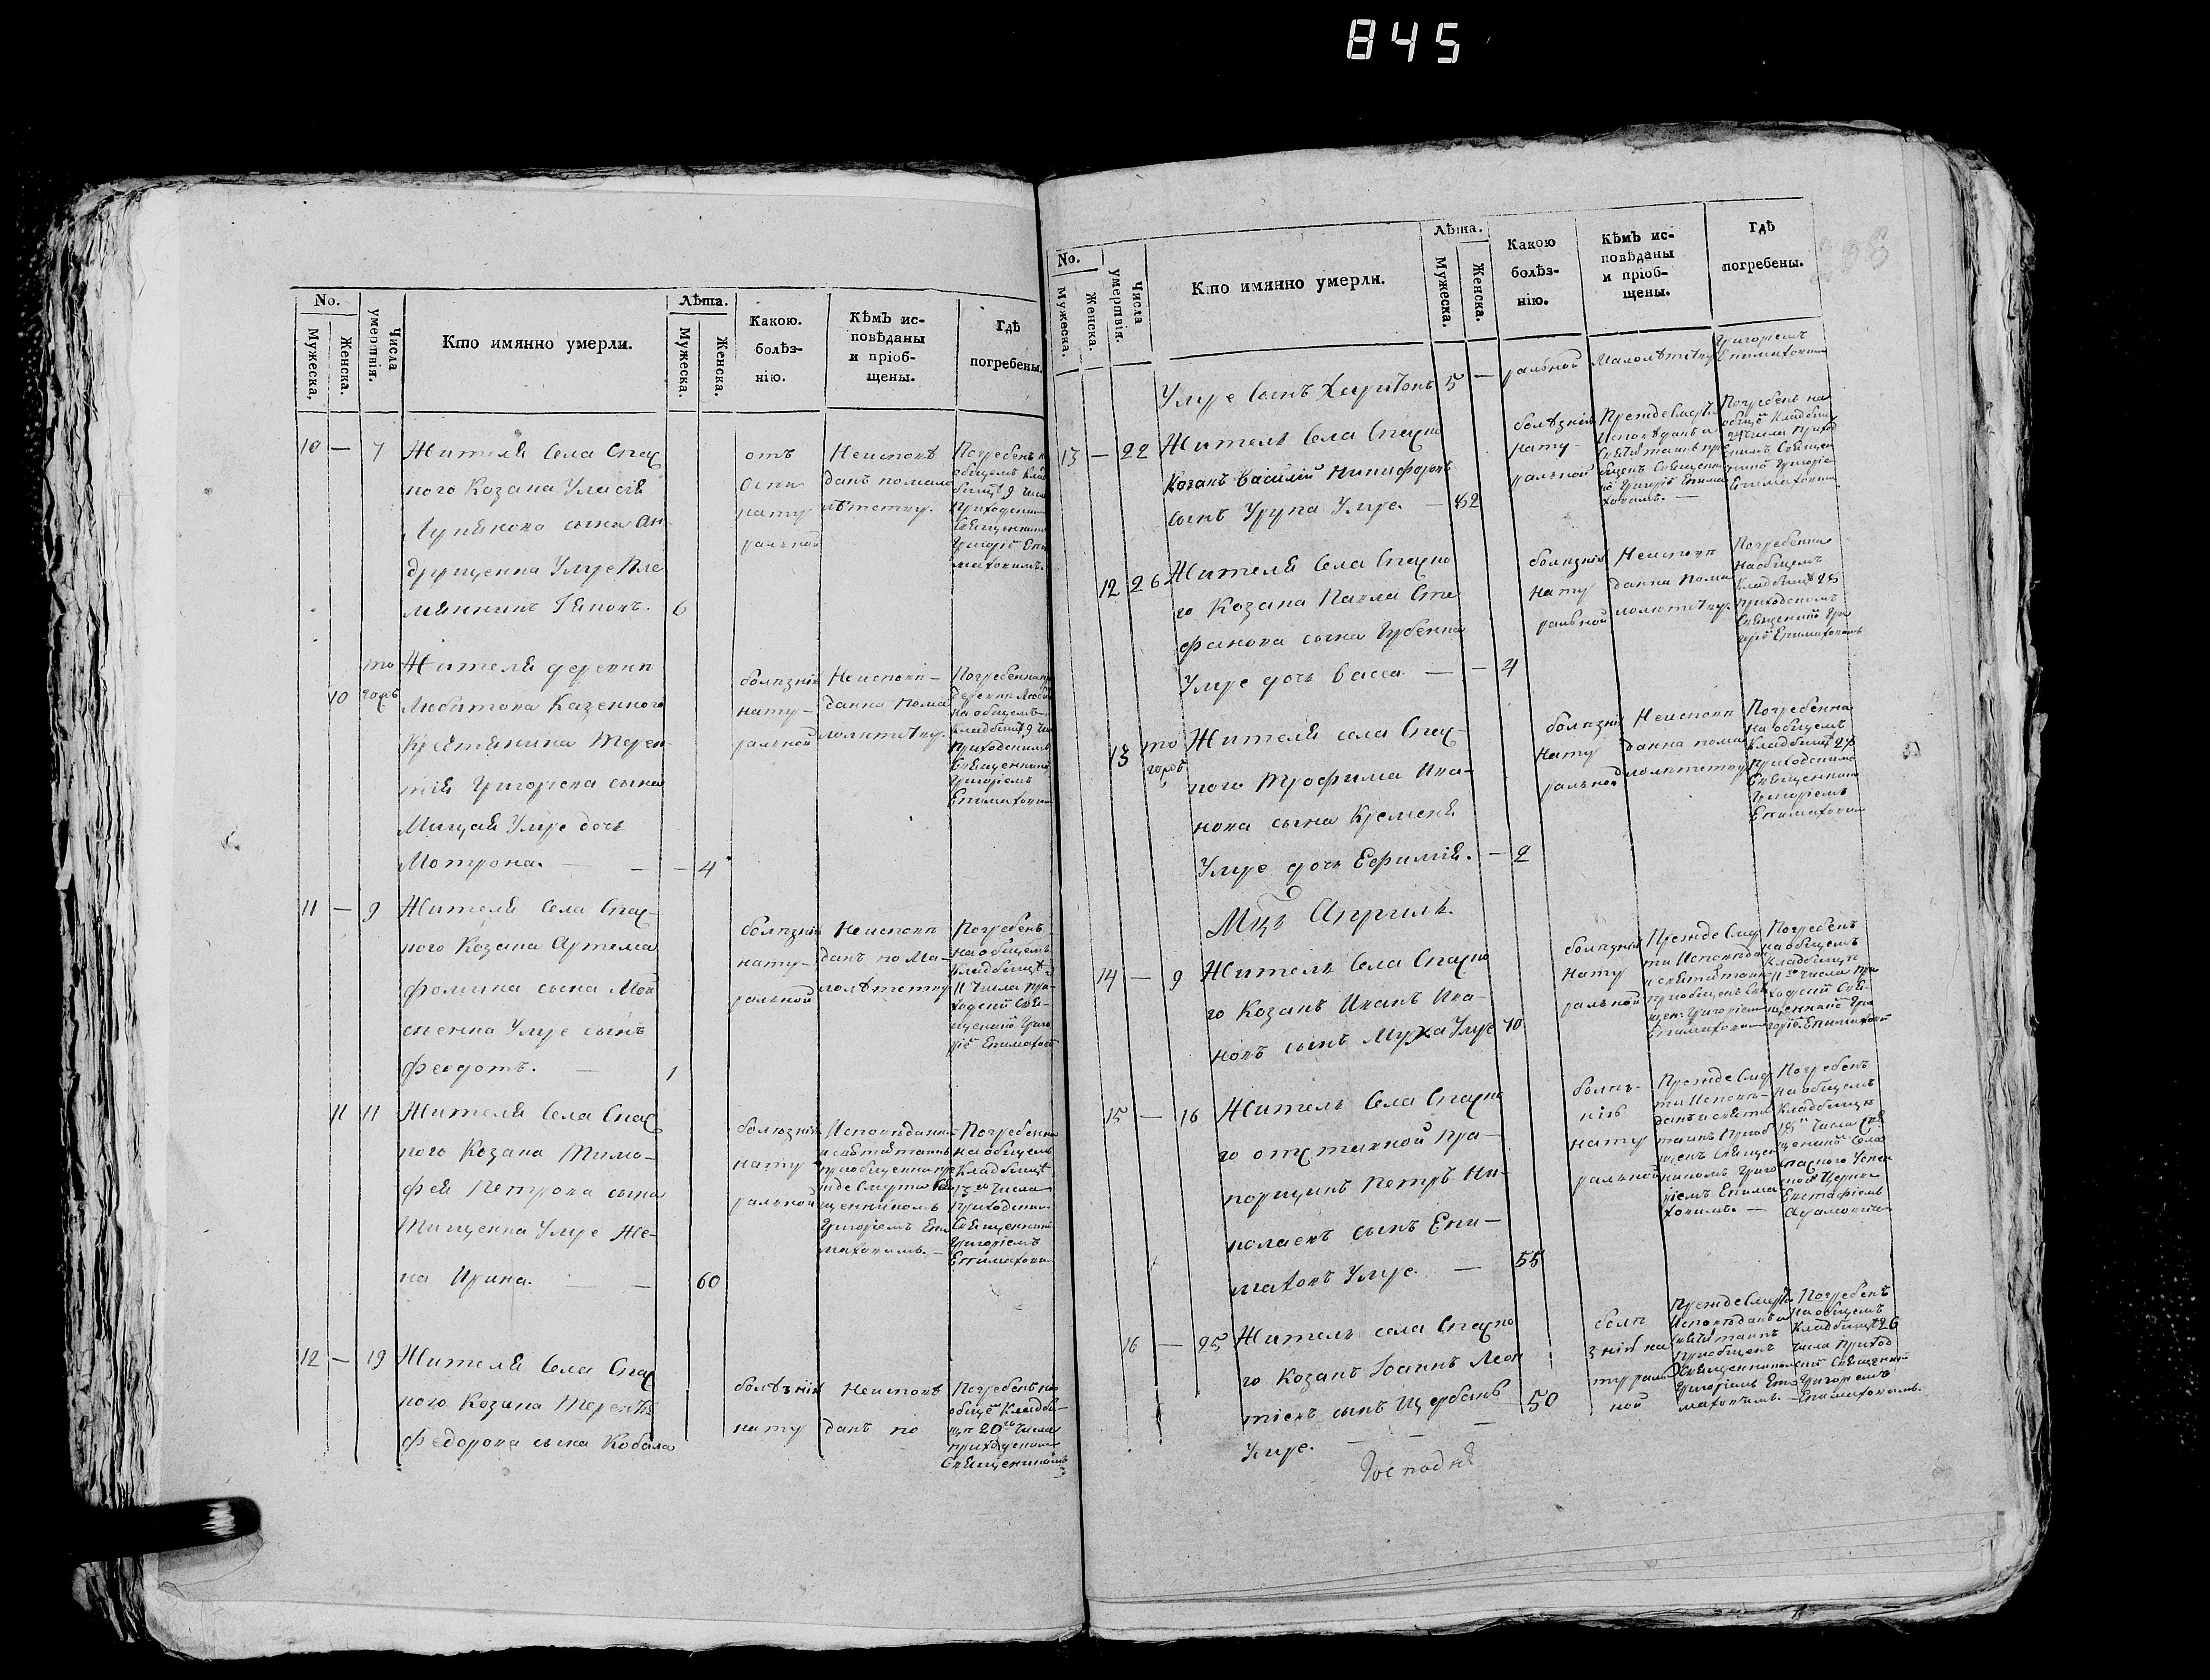 845
No.
Мужеска,
Женска.
Числа
умертвія.
Кто имянно умерли.
Лѣта.
Мужеска.
Женска.
Какою.
болѣз-
нію.
Кѣмъ ис-
повѣданы
и пріоб-
щены.
Гдѣ
погребены.
10 — 7
Жителя Села Спас
ного Козака Уласія
сына Ан-
друщенка Умре Пле
мянникъ 6
отъ
Оспы
нату
ральной
Неисповѣ
данъ помало
лѣтству.
Погребенъ
общемъ
9
Приходским
Священник
Григоріе Епи
маховимъ.
10
то
гожъ
Жителя деревни
Любитова Казенного
Крестянина Терен-
тія Григорева сына
Мицая Умре дочь
Мотрона. — — — 4
болѣзнію
нату-
ральной
Неисповѣ-
данна пома
лолѣтству.
Погребенна
деревни
на общемъ
Кладбищѣ 9
Приходскимъ
Священником
Григоріемъ
Епимаховим
11 — 9
Жителя Села Спас-
ного Козака Артема
Фомина сына Мой
сѣенка Умре сынъ
Феодотъ. — 1
болѣзнію
нату-
ральной
Неисповѣ
данъ по Ма-
лолѣтству
Погребенъ
на общемъ
Кладбищѣ
11 числа При-
ходскій Свя-
щенникъ Григо
ріе Епимахов
11 11
Жителя Села Спас
ного Козака Тимо-
фея Петрова сына
Тищенка Умре Же-
на Ирина. — — 60
болѣзнію
нату
ральной
Исповѣданна
и святых таинъ
приобщенна пре
жде смерти Свя
щенникомъ
Григоріемъ Епи
маховимъ. —
Погребенна
на общемъ
Кладбищѣ
13го числа
Приходским
Священником
Григоріемъ
Епимахови
12 — 19
Жителя Села Спас
ного Козака Терентія
Федорова сына Кобала
болѣзнію
нату
Неисповѣ
данъ по
Погребенъ на
обще Кладби-
щѣ 20го числа
приходским
Священникомъ
No.
Мужеска.
Женска.
Числа
умертвія.
Кто имянно умерли.
Лѣта.
Мужеска.
Женска.
Какою
болѣз-
нію.
Кѣмъ ис-
повѣданы
и пріоб-
щены.
Гдѣ
погребены.
Умре сынъ Харитонъ 5 —
ральной
Малолѣтству
Григоріемъ
Епимаховим
13 — 22
Житель Села Спасно
Козакъ Василій Никифоровъ
сынъ Умре. — 82
болѣзнію
нату-
ральной
Прежде Смерти
Исповѣданъ и
Святих таинъ при
общенъ Священни
ко Григоріе Епима
ховимъ. —
Погребенъ на
обще Кладбищ
24 числа приход
скимъ Священ
никомъ Григоріе
Епимахови
12 26
Жителя Села Спасно
го Козака Павла Сте
фанова сына Губенка
Умре дочь Васса. — — 4
болѣзнію
нату
ральной
Неисповѣ
данна пома
лолѣтству.
Погребенна
на общемъ
Кладбищѣ 28
Приходскомъ
Священнико Гри
горіе Епимаховимъ
13
то
гожъ
Жителя села Спас-
ного Трофима Ива-
нова сына Кременя
Умре дочь Ефимія. — 2
болѣзнію
нату
ральной
Неисповѣ
данна пома
лолѣтству
Погребенна
на общемъ
Кладбищѣ 28
приходскимъ
Священником
Григоріемъ
Епимахови
Мцъ Априль.
14 — 9
Житель Села Спасно
го Козакъ Иванъ Ива-
новъ сынъ Муха Умре 70
болѣзнію
нату
ральной
Прежде Смер
ти Исповѣдан
и святих таинъ
приобщенъ Свя
щен: Григоріем
Епимахови
Погребенъ
на общемъ
Кладбищѣ
11го числа При
ходскій Свя-
щенникъ Гри
горіе Епимахов
15 — 16
Житель Села Спасно
го отставной Пра-
порщикъ Петръ Ни-
колаевъ сынъ Епи-
маховъ Умре. — 55
болѣз-
нію
нату
ральной
Прежде Смер
ти Исповѣ-
данъ и святи
таинъ Приоб
щенъ Священ
никомъ Григо
ріемъ Епима
ховимъ. —
Погребенъ
на общемъ
Кладбищѣ
18 числа Свя
щенник Села
Спасного Успен
ской Церкви
Евстафіемъ
Адамовим
16 — 25
Житель села Спасно
го Козакъ Іоаннъ Леон
тіевъ сынъ Щербакъ 50
Умре. — — —
болѣ
знію на
тураль
ной
Прежде Смерти
Исповѣданъ и
святих таинъ
Приобщенъ
Священником
Григоріемъ Епи
маховимъ. —
Погребенъ
на общемъ
Кладбищѣ 26
числа Приход
скій Священник
Григоріемъ
Епимаховимъ.
Господня